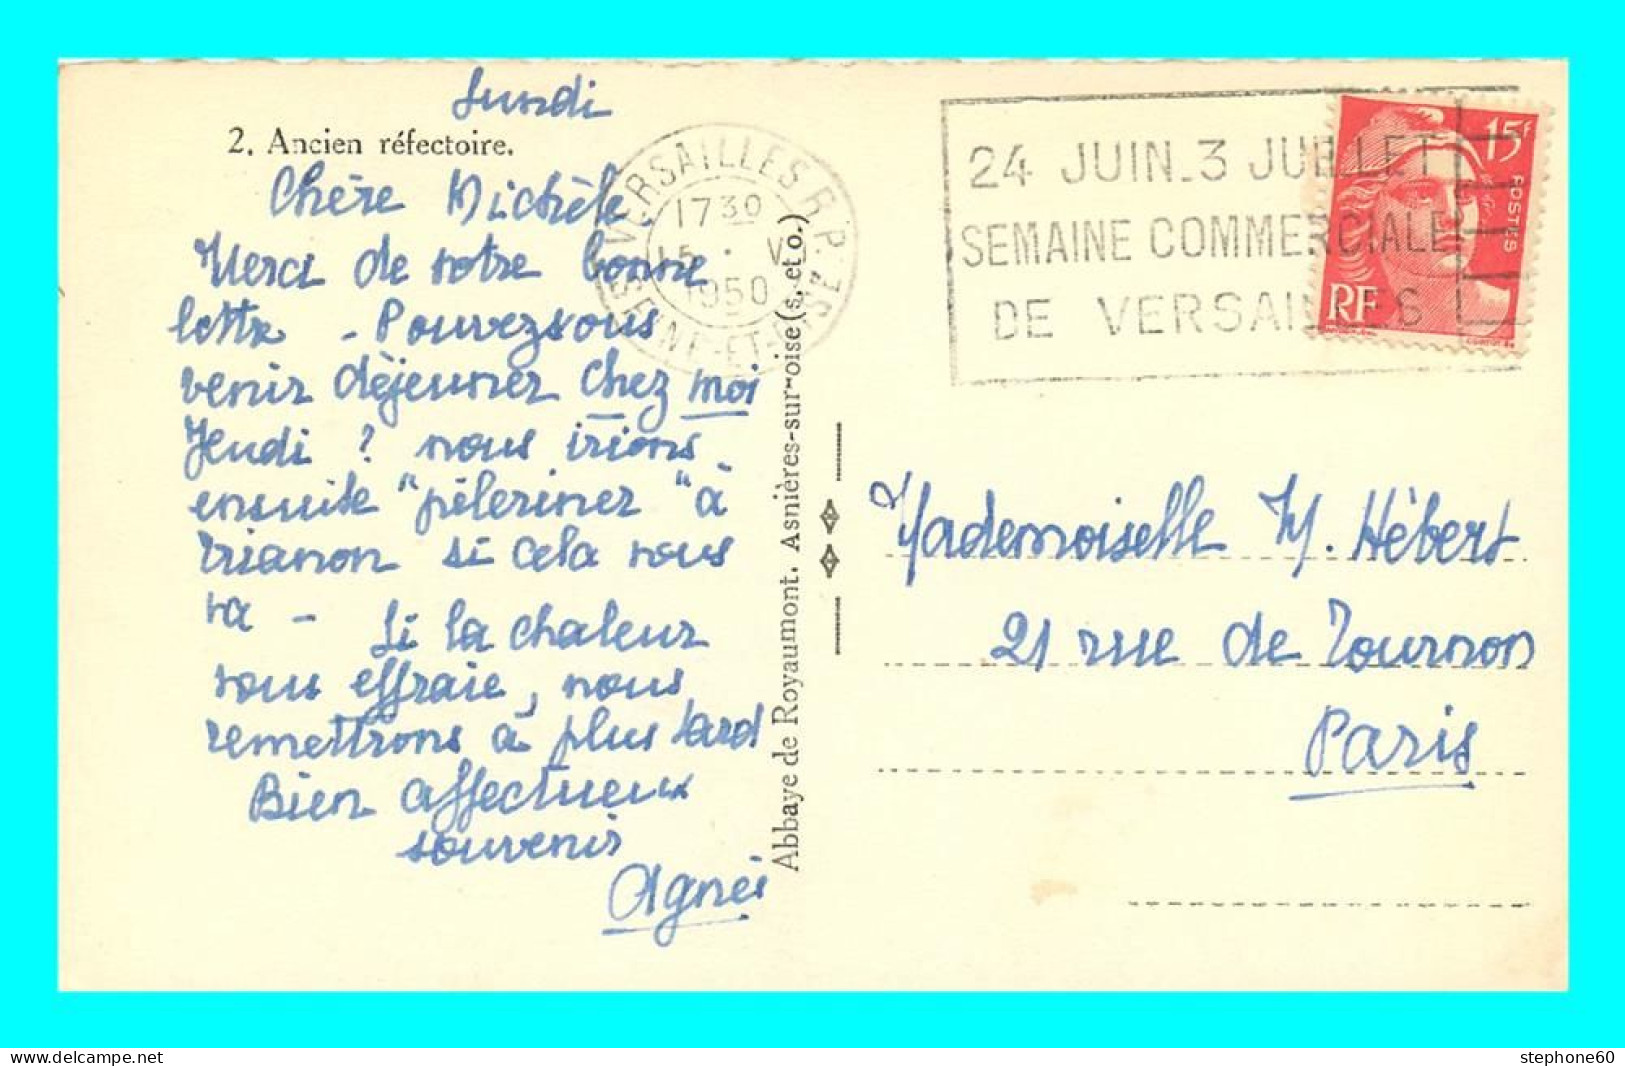 lundi
2. Ancien réfectoire.
Chère Michèle
Merci de votre bonne
lettre - Pouvez vous
venir déjeuner chez moi
Jeudi ? nous irions
ensuite "péleriner" à
Trianon si cela vous
va - Si la chaleur
vous effraie, nous
remettrons à plus tard
Bien affectueux
souvenir
Agnès
VERSAILLES R.P.
SEINE-ET-OISE
1730
1950
Abbaye de Royaumont. Asnières-sur-oise (s. et o.)
24 JUIN_3 JUILLET
SEMAINE COMMERCIALE
DE VERSAILLES
15F
POSTES
RF
Mademoiselle M. Hébert
21 rue de Tournon
Paris
stephone60